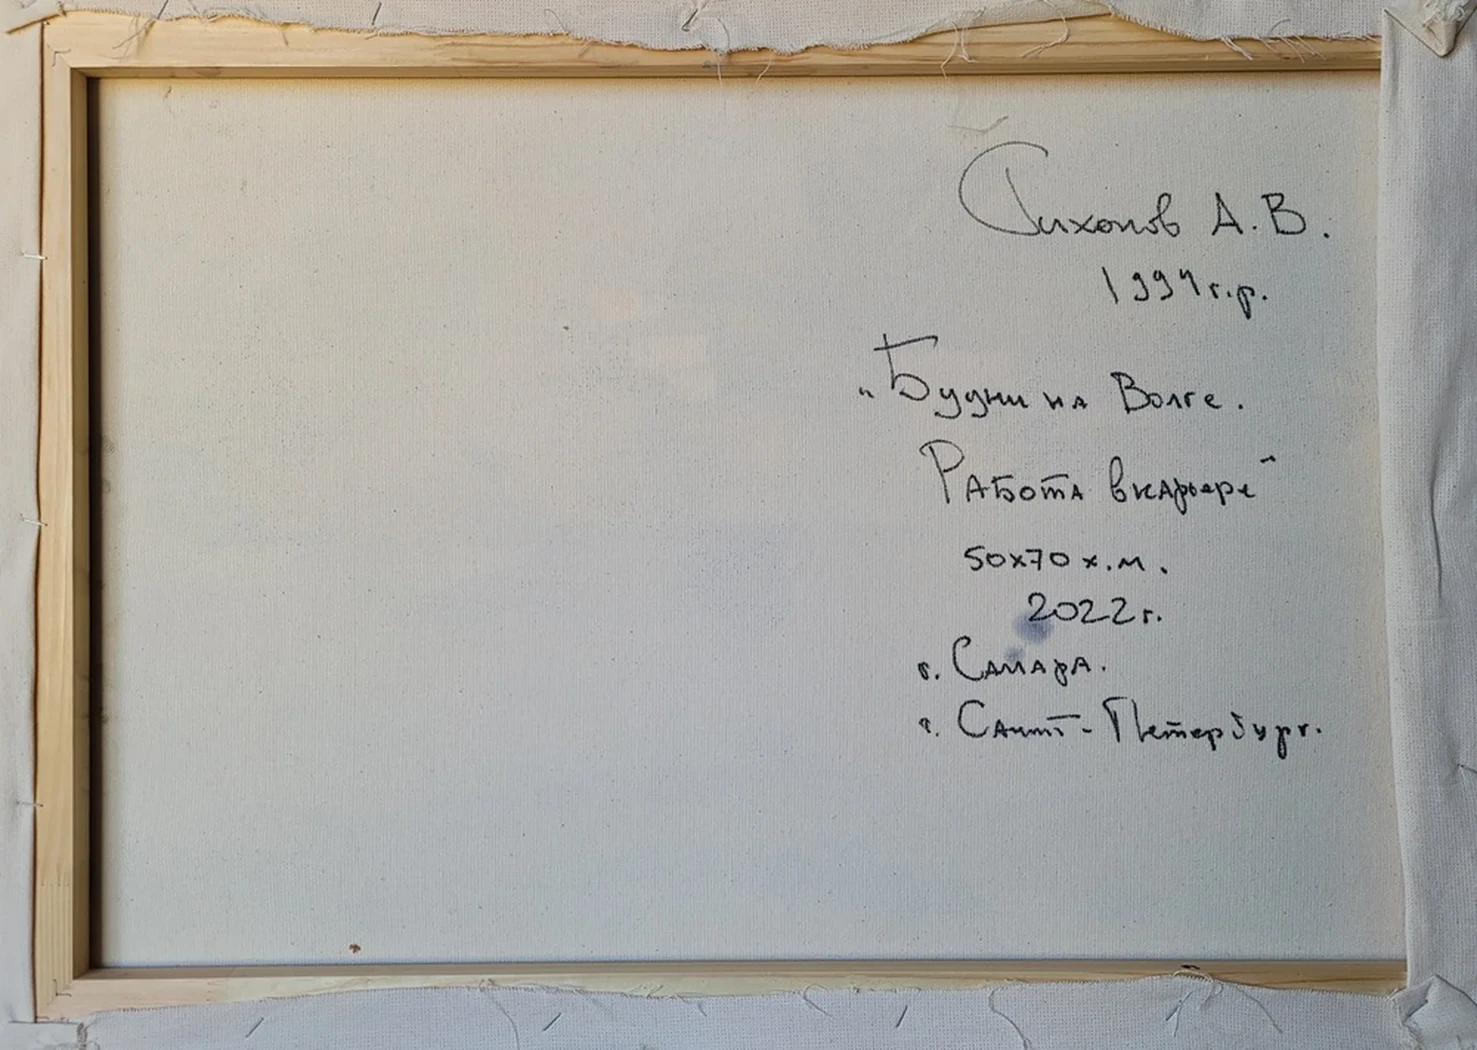 Тихонов А.В.
1994г.р.
"Будни на Волге.
Работа в карьере"
50х70 х.м.
2022г.
г. Самара.
г. Санкт-Петербург.